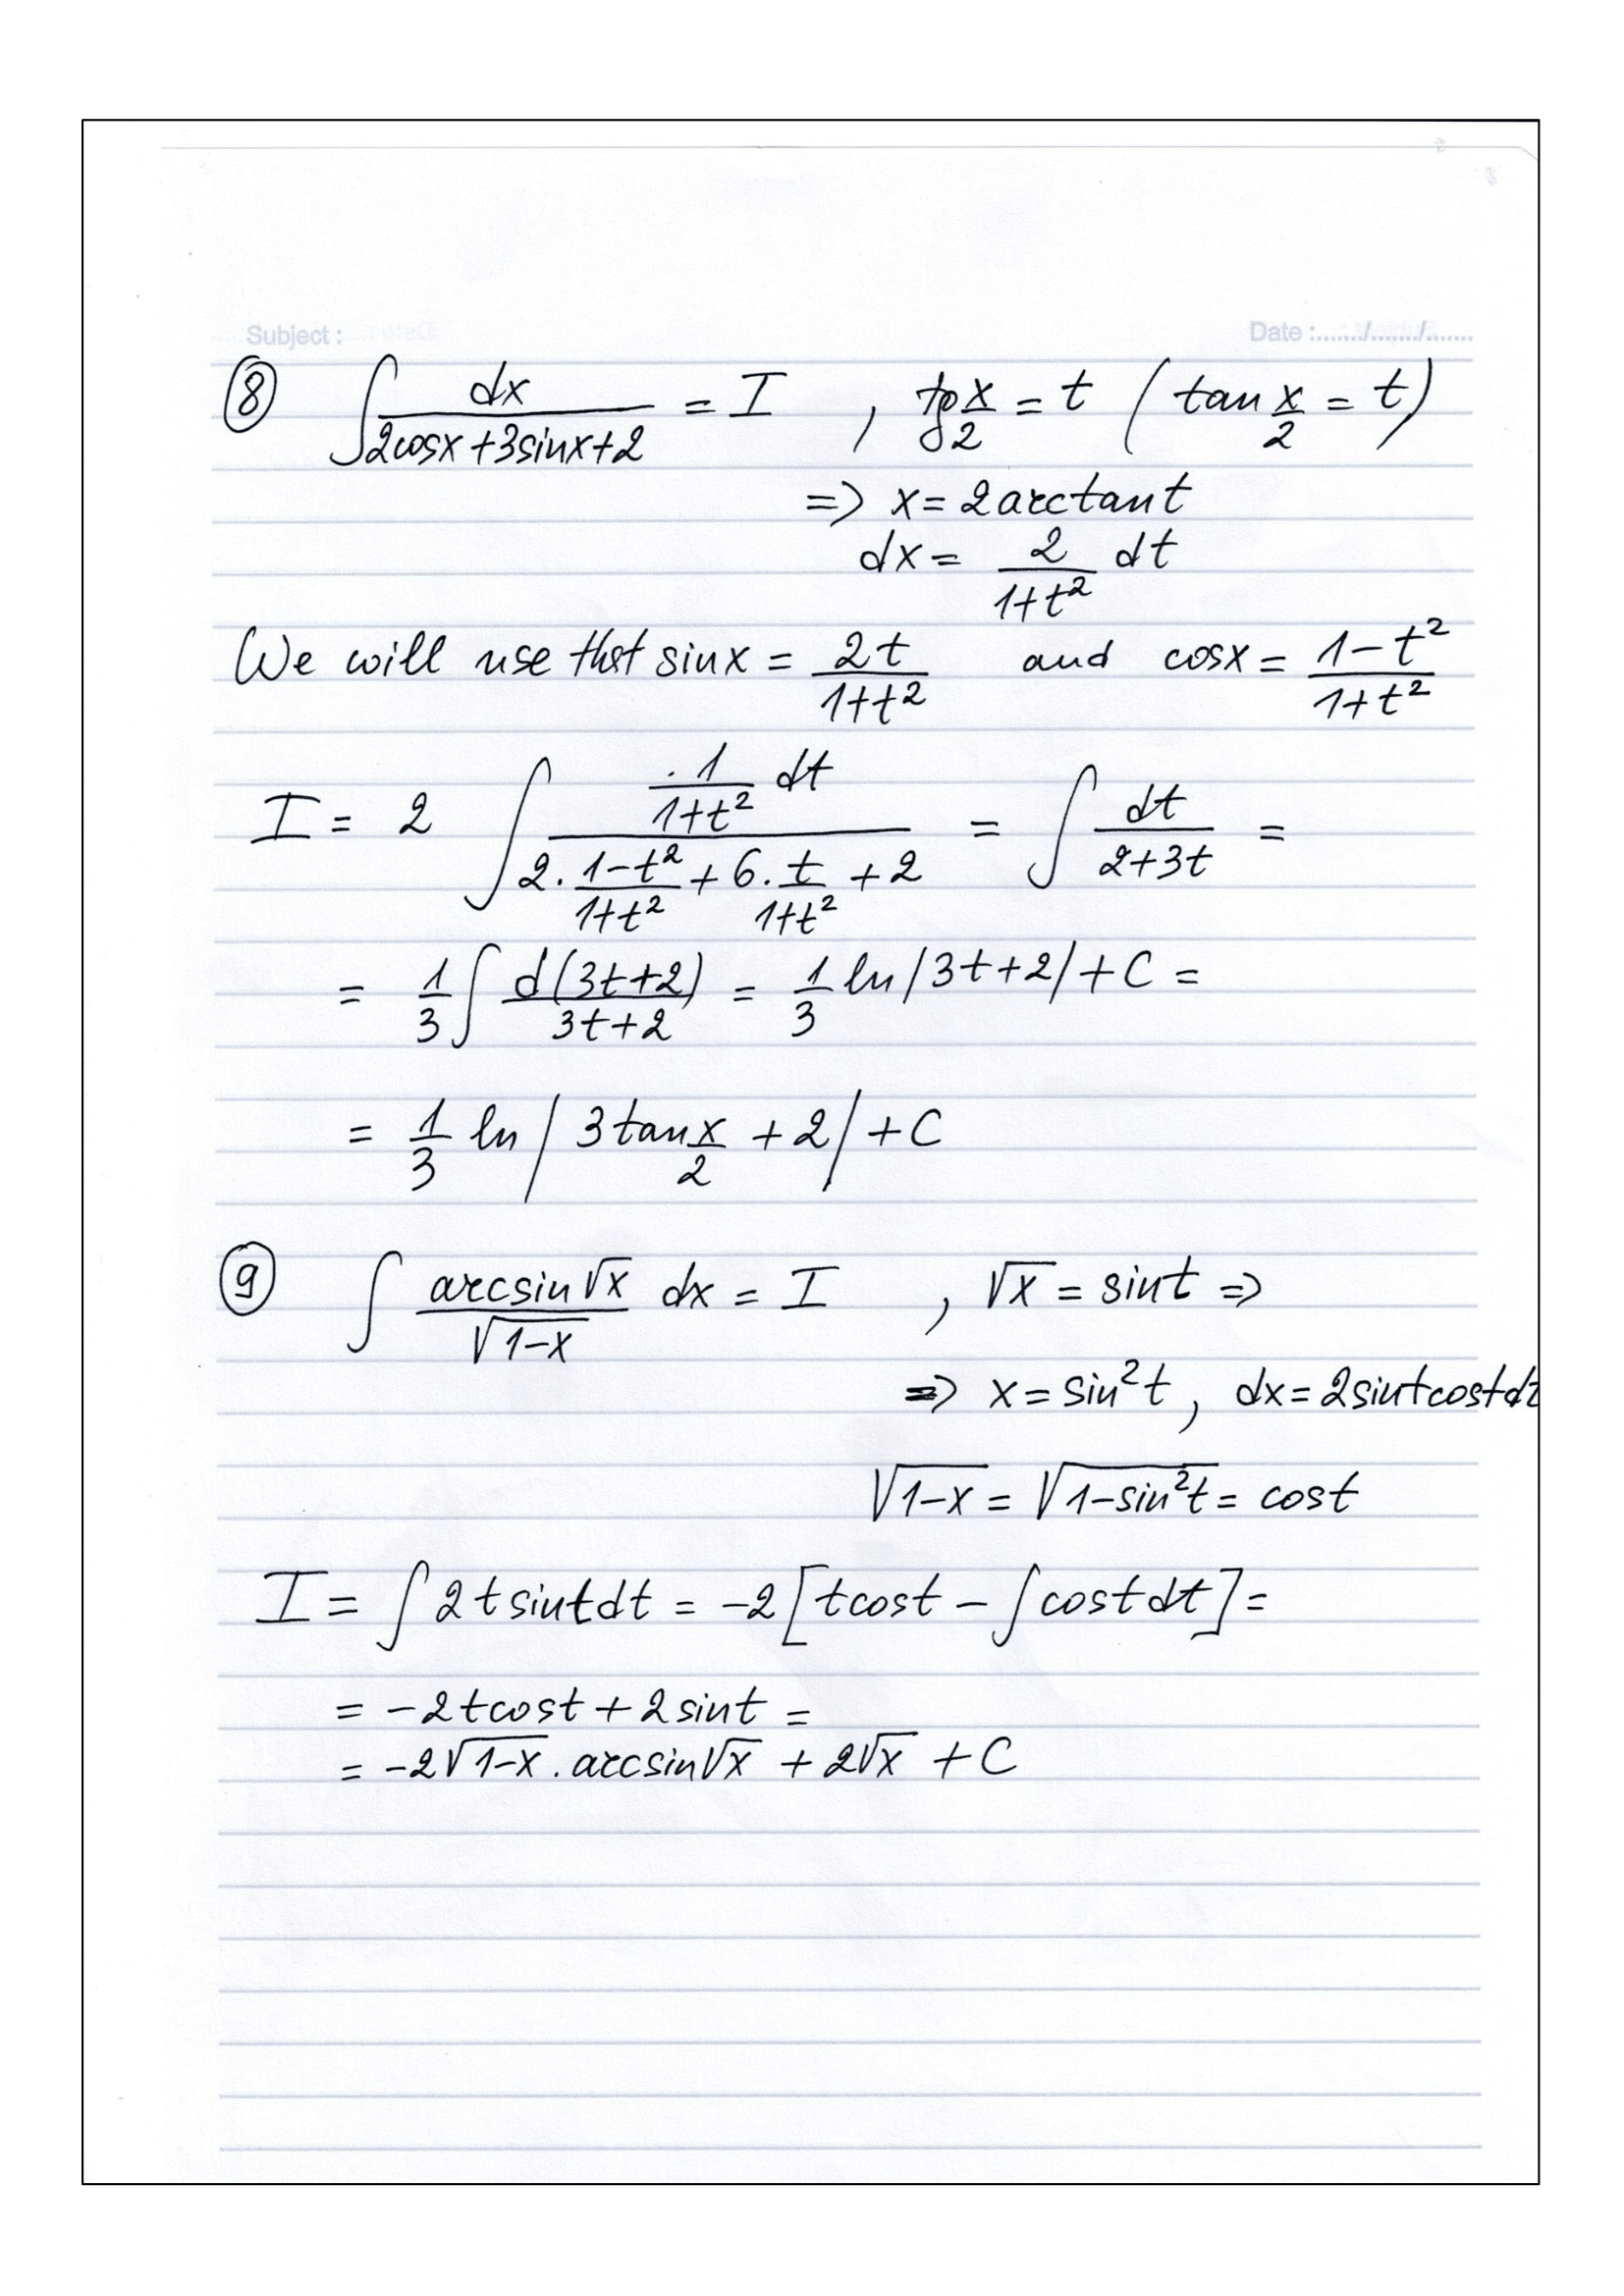 Subject : Date :......../......./.......
⑧ ∫ dx/(2cosx+3sinx+2) = I , tg x/2 = t (tan x/2 = t)
=> x = 2arctant
dx = 2/(1+t²) dt
We will use that sinx = 2t/(1+t²) and cosx = (1-t²)/(1+t²)
I = 2 ∫ (1/(1+t²) dt)/(2.(1-t²)/(1+t²) + 6.t/(1+t²) + 2) = ∫ dt/(2+3t) =
= 1/3 ∫ d(3t+2)/(3t+2) = 1/3 ln|3t+2|+C =
= 1/3 ln|3tan x/2 + 2|+C
⑨ ∫ arcsin√x/√(1-x) dx = I , √x = sint =>
=> x = sin²t , dx = 2sintcostdt
√(1-x) = √(1-sin²t) = cost
I = ∫ 2tsintdt = -2[tcost - ∫costdt] =
= -2tcost + 2sint =
= -2√(1-x) . arcsin√x + 2√x + C